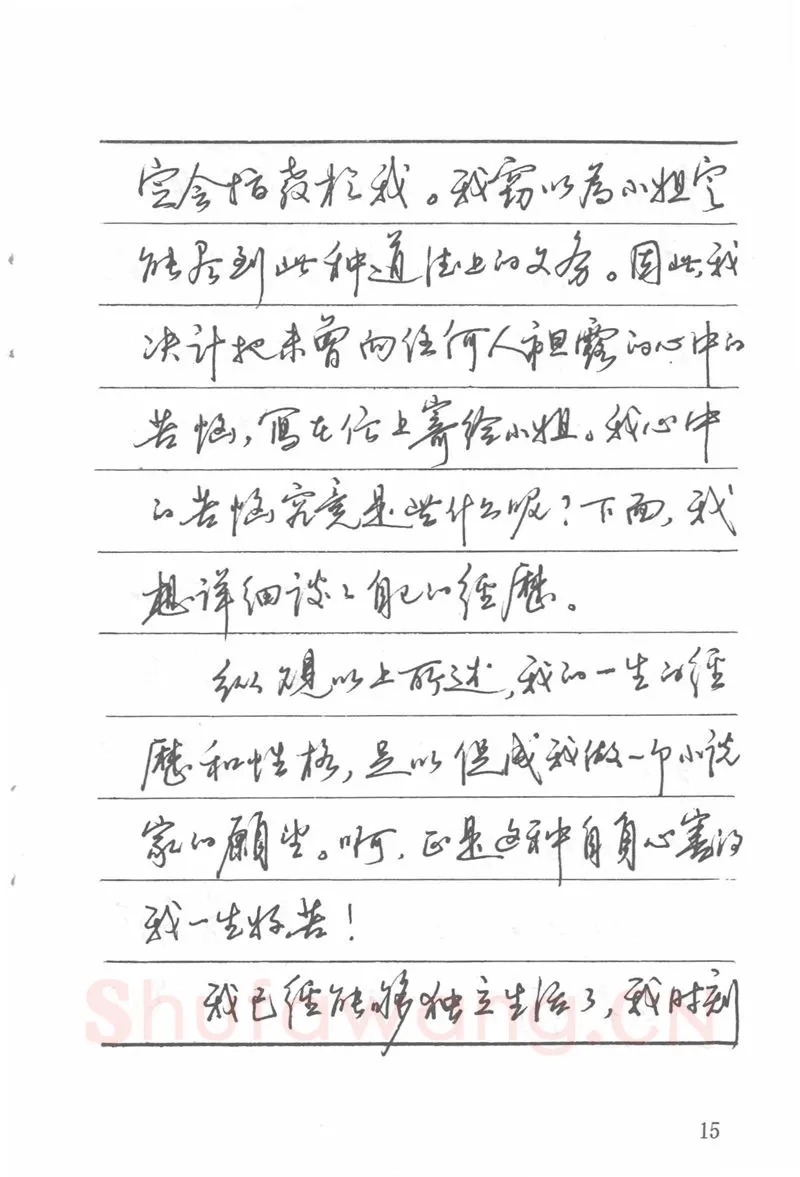 定会指教于我。我窃以为小姐定
能尽到此种道法上的义务。因此,我
决计把未曾向任何人袒露的心中的
苦恼,写在信上寄给小姐。我心中
的苦恼究竟是些什么呢?下面,我
想详细谈谈自己的經歷。
纵观以上所述,我的一生的經
歷和性格,足以促成我做一个小说
家的願望。啊,正是这种自负心害的
我一生好苦!
我已經能够独立生活了,我时刻
Shufawang.CN
15